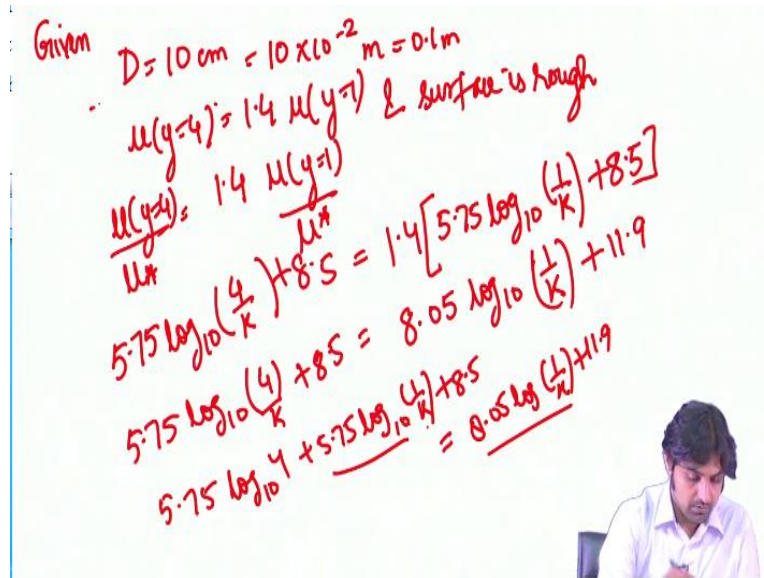 Given D = 10 cm = 10 x 10^-2 m = 0.1 m
u(y=4) = 1.4 u(y=1) & surface is rough
u(y=4)/u* = 1.4 u(y=1)/u*
5.75 log10 (4/K) + 8.5 = 1.4 [5.75 log10 (1/K) + 8.5]
5.75 log10 (4/K) + 8.5 = 8.05 log10 (1/K) + 11.9
5.75 log10 4 + 5.75 log10 (1/K) + 8.5 = 8.05 log (1/K) + 11.9